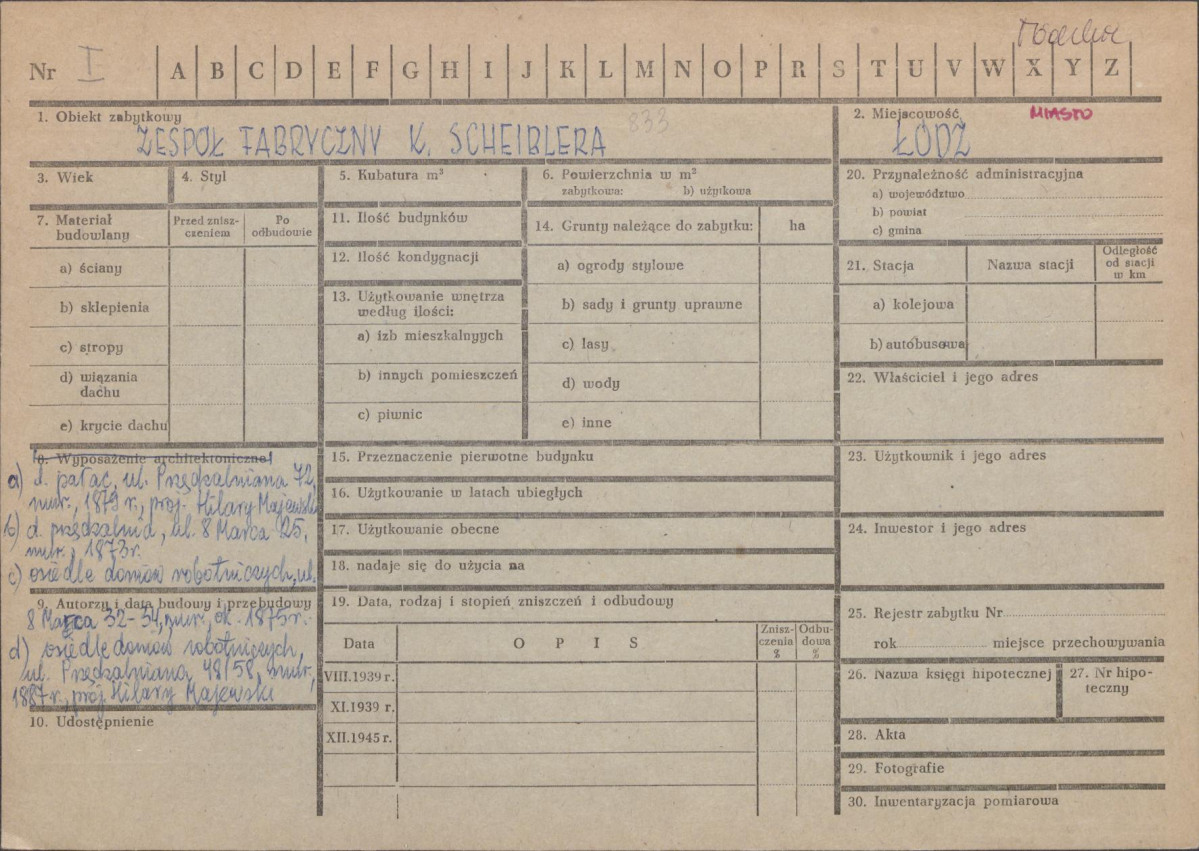 Nr I A B C D E F G H I J K L M N O P R S T U V W X Y Z
1. Obiekt zabytkowy
ZESPÓŁ FABRYCZNY K. SCHEIBLERA
833
2. Miejscowość
MIASTO
ŁÓDŹ
3. Wiek
4. Styl
5. Kubatura m³
6. Powierzchnia w m²
zabytkowa: b) użytkowa
20. Przynależność administracyjna
a) województwo
b) powiat
c) gmina
7. Materiał
budowlany
Przed znisz-
czeniem
Po
odbudowie
a) ściany
b) sklepienia
c) stropy
d) wiązania
dachu
e) krycie dachu
11. Ilość budynków
12. Ilość kondygnacji
13. Użytkowanie wnętrza
według ilości:
a) izb mieszkalnyych
b) innych pomieszczeń
c) piwnic
14. Grunty należące do zabytku:
ha
a) ogrody stylowe
b) sady i grunty uprawne
c) lasy
d) wody
e) inne
21. Stacja
Nazwa stacji
Odległość
od stacji
w km
a) kolejowa
b) autobusowa
22. Właściciel i jego adres
8. Wyposażenie architektoniczne
a) d. pałac, ul. Przędzalniana 72,
mur., 1879 r., proj. Hilary Majewski
b) d. przędzalnia, ul. 8 Marca 25,
mur., 1873r.
c) osiedle domów robotniczych, ul.
9. Autorzy i data budowy i przebudowy
8 Marca 32-54, mur. ok. 1875r.
d) osiedle domów robotniczych,
ul. Przędzalniana 48/58, mur.,
1887r., proj. Hilary Majewski
10. Udostępnienie
15. Przeznaczenie pierwotne budynku
16. Użytkowanie w latach ubiegłych
17. Użytkowanie obecne
18. nadaje się do użycia na
19. Data, rodzaj i stopień zniszczeń i odbudowy
Data
O P I S
Znisz-
czenia
%
Odbu-
dowa
%
VIII.1939 r.
XI.1939 r.
XII.1945 r.
23. Użytkownik i jego adres
24. Inwestor i jego adres
25. Rejestr zabytku Nr
rok miejsce przechowywania
26. Nazwa księgi hipotecznej
27. Nr hipo-
teczny
28. Akta
29. Fotografie
30. Inwentaryzacja pomiarowa